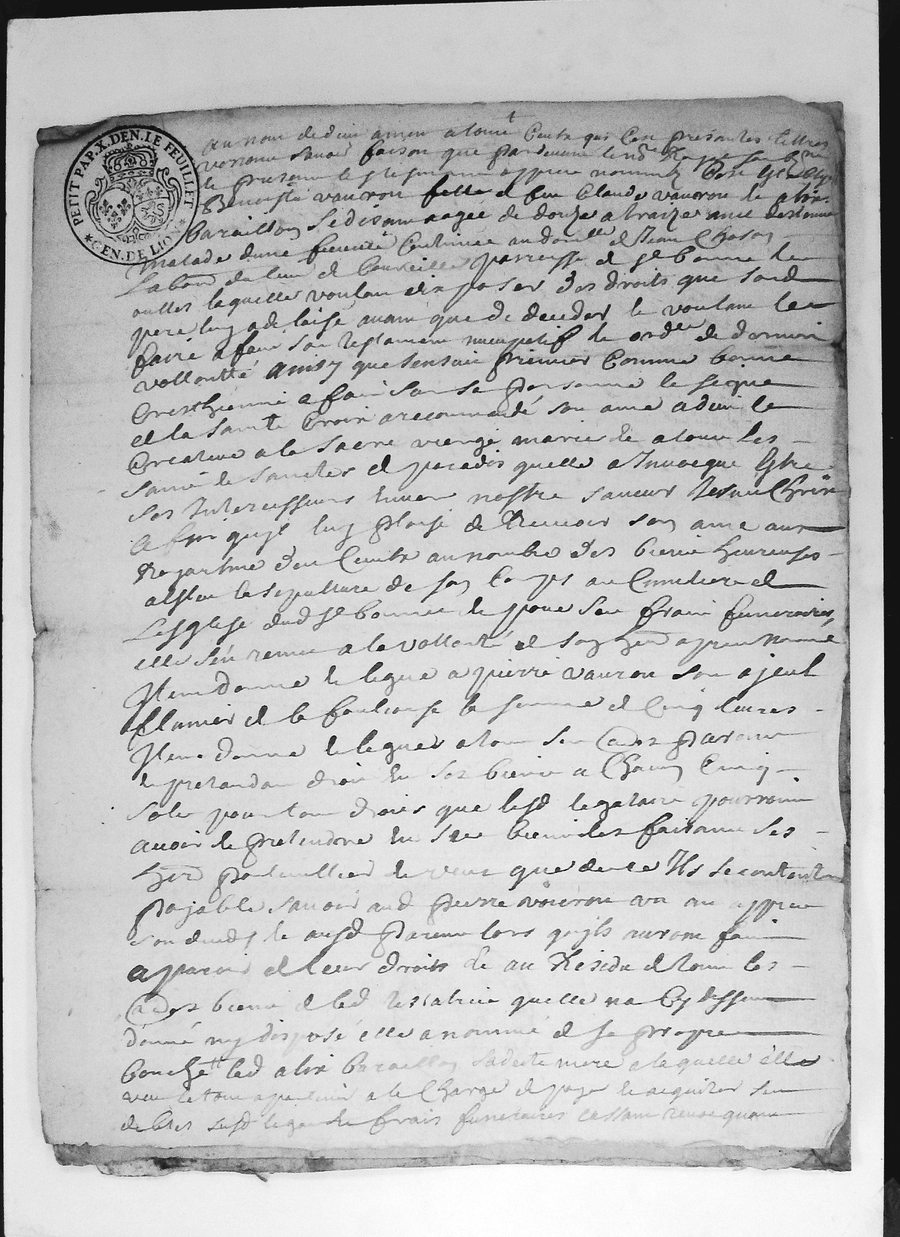 PETIT PAP. X. DEN. LE FEUILLET
GEN. DE LION
au nom de dieu amen a tous ceux que ces presantes lettres
verront savoir faison que par devant le no.re
le presant et tesmoins appres nommez
Benoiste vauron fille de feu Claude vauron et alix
baraillon se disant aagée de douze a traize ans detenue
malade dune fieuvre continue au domicille de Jean
Lab.r du lieu de parroisse de st bonnet le
oulles laquelle voulan disposer des droits que sond
pere luy a delaisé avant que de deceder et voulant
faire a fait son testament nuncupatif et ordce de derniere
vollontté ainsy que sensuit premier comme bonne
Crestienne a fait sur sa personne le signe
de la sainte Croix a recommandé son ame a dieu le
Createur a la sacré vierge marie et a tous les
saints et sanctes de paradis quelle a Invoque
ses Intercessions envers nostre sauveur Jesus Christ
affin quil luy plaise de recevoir son ame au
royaulme des Cieulx au nombre des bien heureuses
aslon la sepulture de son corps au Cimetiere de
Lesglise dud st bonnet et pour ses frais funeraires
elle sen remet a la vollonté de son her appres nommé
Item donne et legue a pierre vauron son ajeul
la somme de Cinq livres
Item donne et legue a tous ses autres parans
et pretandan droit en ses biens a Chacun Cinq
sols pour tous droits que lesd legataires pourroint
avoir et pretendre en ses biens les faisant ses
her particulliers et veut que de ce Ils se contentent
payable savoir aud pierre vauron un an appres
son deceds et ausd parens lors quils auront fait
aparoir de leur droits Et au Residu de tous les
autres biens de lad testatrice quelle na Cy dessus
donné ny disposé elle a nommé de sa propre
bouche lad alix baraillon sadite mere a laquelle elle
veut le tout apartenir a la Charge de payer et acquiter ses
debtes susd legats et frais funeraires cassant revoquant